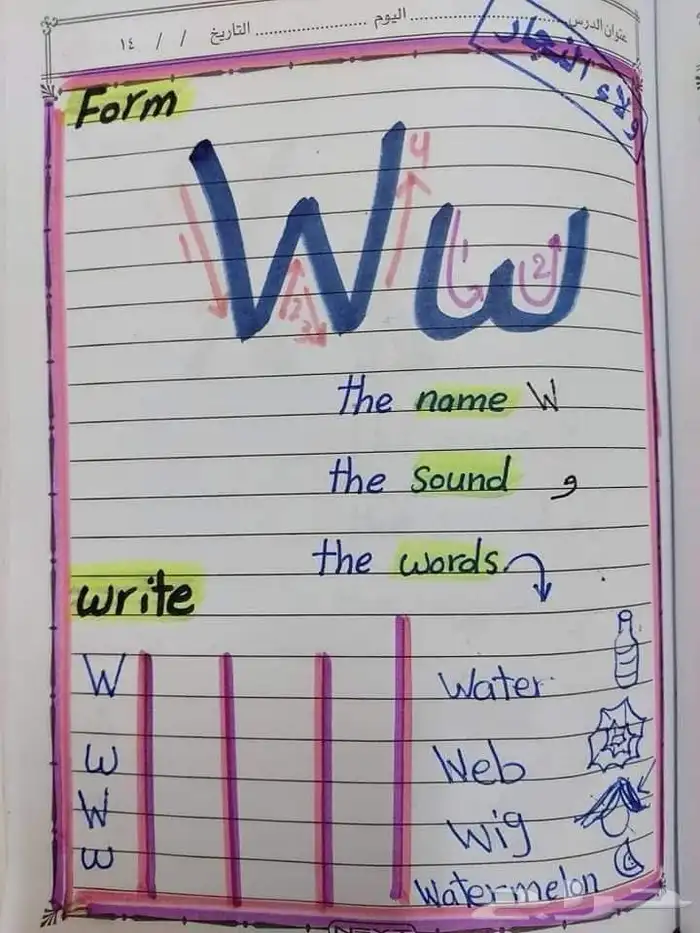 عنوان الدرس.................... اليوم .................... التاريخ / / ١٤
ولاء النجار
Form
W w
1 2 3 4 1 2
the name W
the sound و
the words
write
W Water
w Web
W Wig
w Watermelon
NEXT